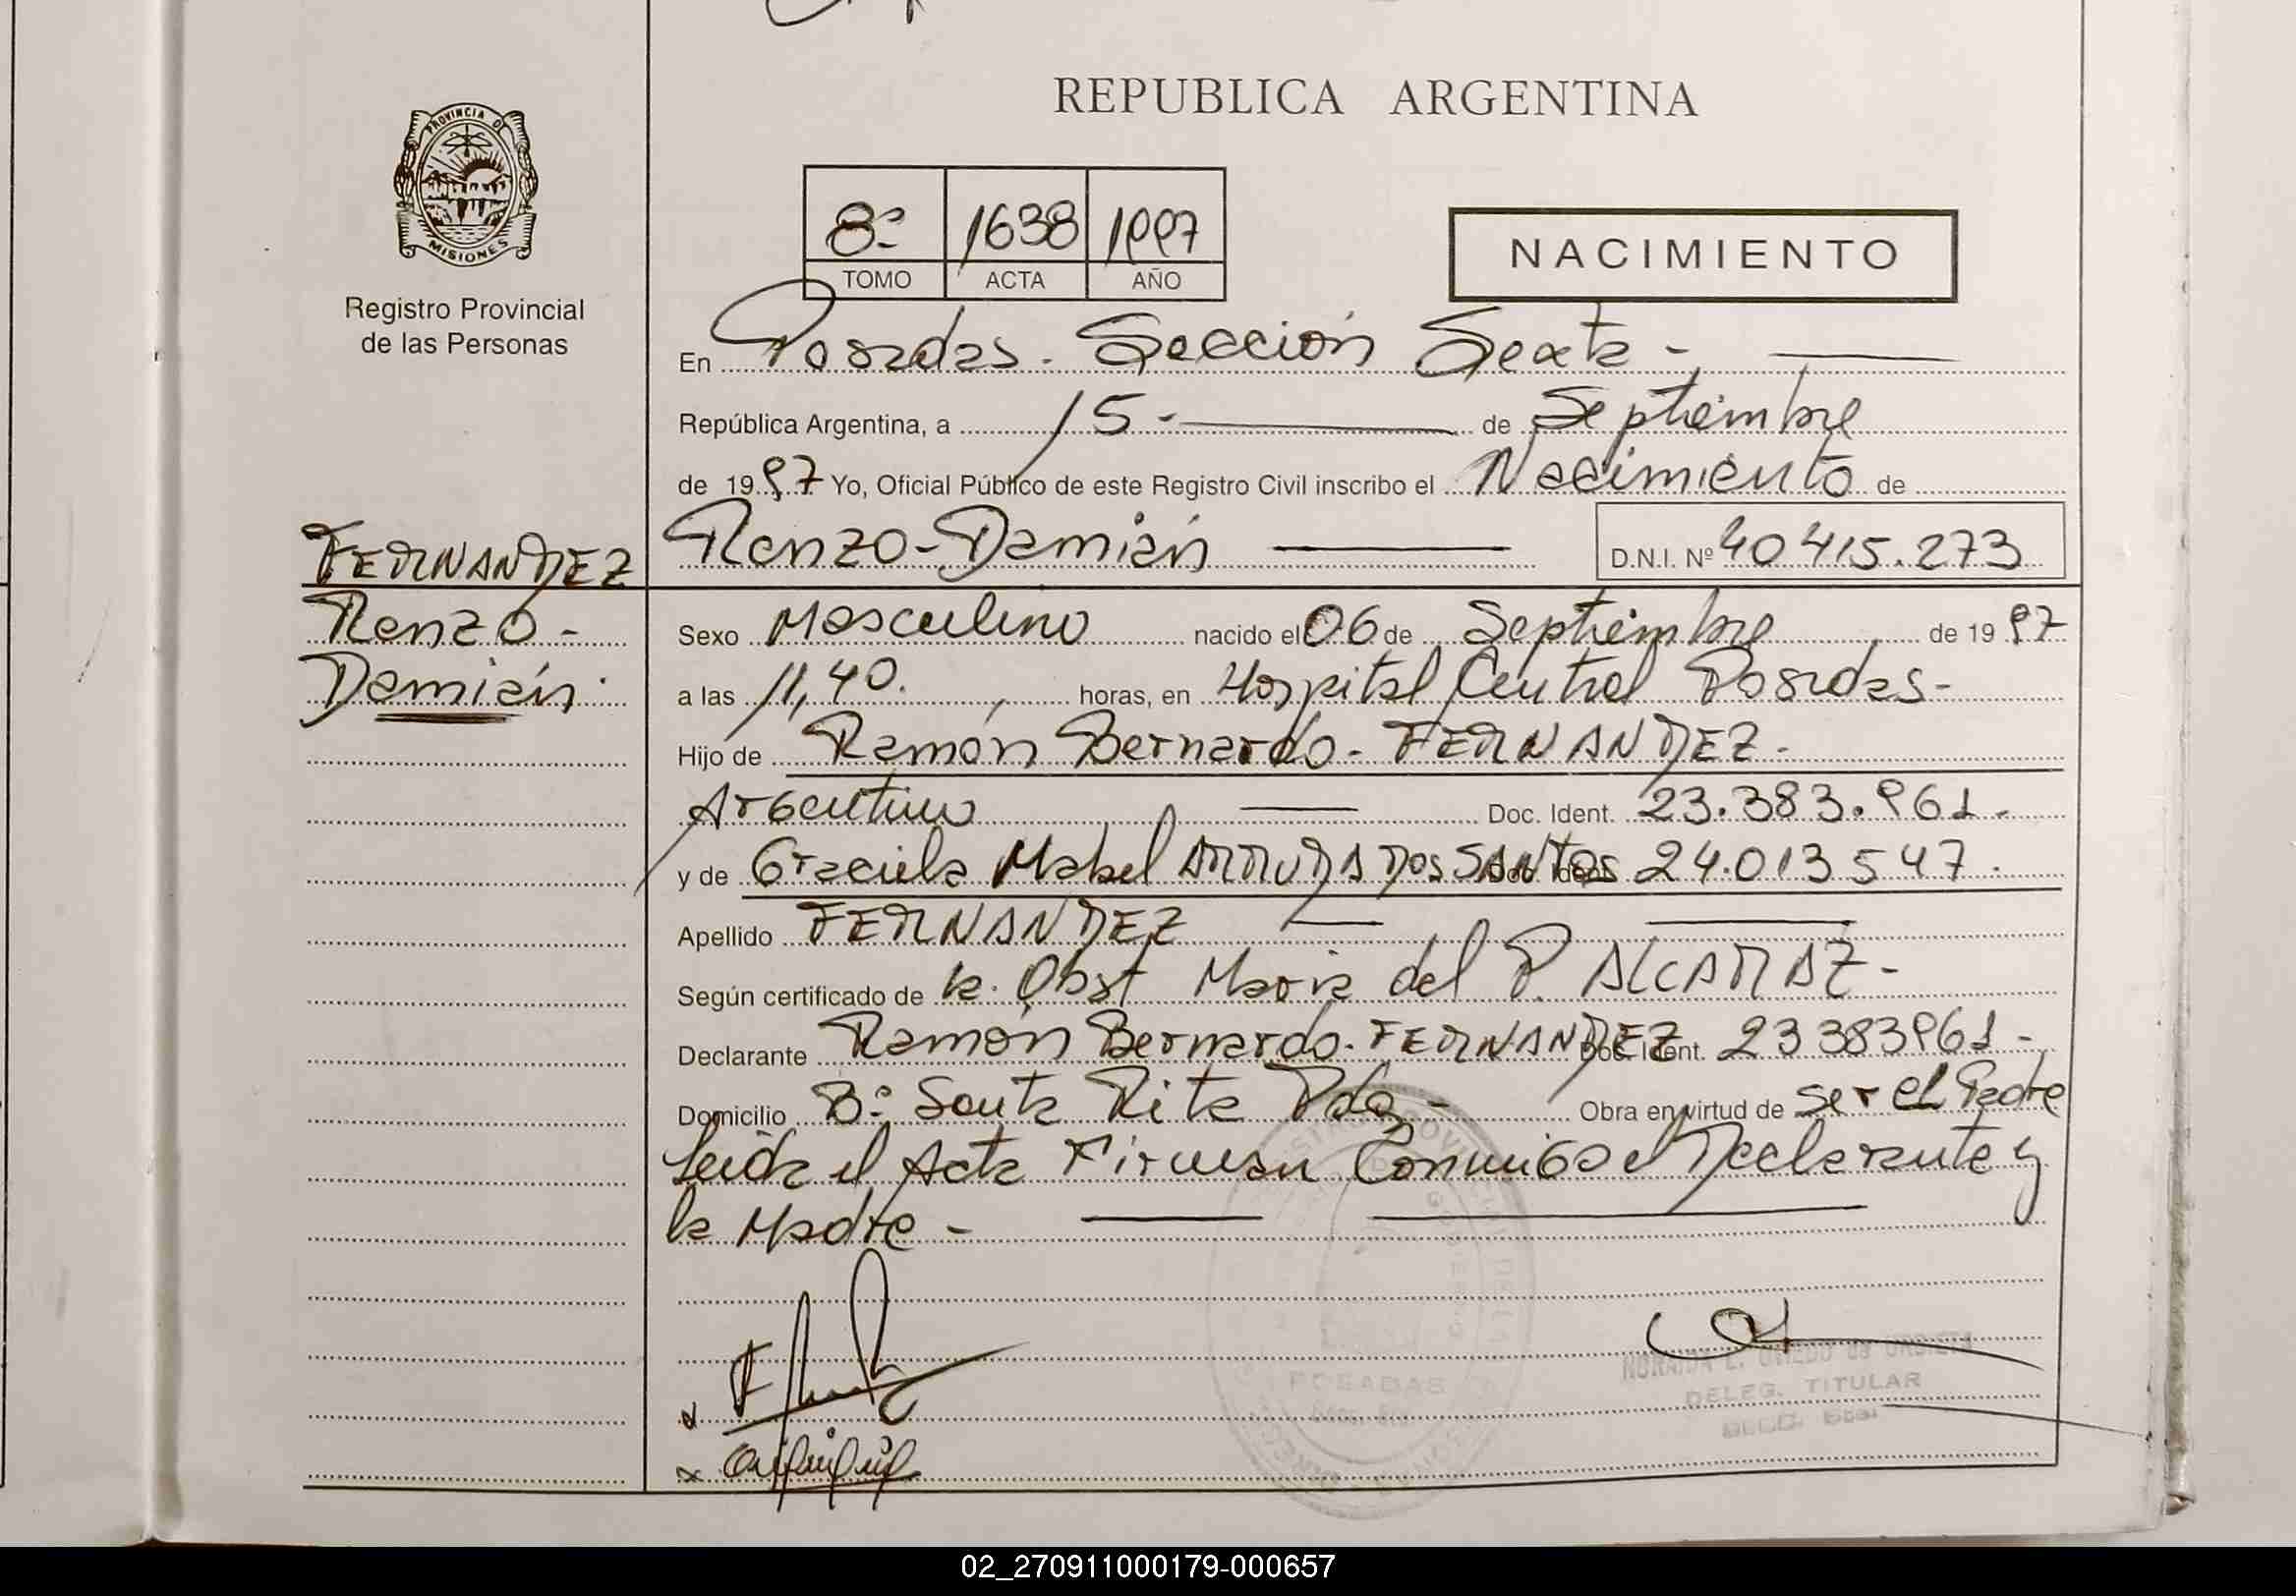 REPUBLICA ARGENTINA
PROVINCIA DE
MISIONES
Registro Provincial
de las Personas
8º 1638 1997
TOMO ACTA AÑO
NACIMIENTO
En Posadas - Sección Sexta -
República Argentina, a 15 - de Septiembre
de 1997 Yo, Oficial Público de este Registro Civil inscribo el Nacimiento de
Renzo - Damián D.N.I. Nº 40 415.273
FERNANDEZ
Renzo -
Damián
Sexo Masculino nacido el 06 de Septiembre de 1997
a las 11,40. horas, en Hospital Central Posadas -
Hijo de Ramón Bernardo - FERNANDEZ -
Argentino Doc. Ident. 23.383.961 -
y de Graciela Mabel ARRUDA DOS SANTOS Doc. Ident. 24.013 547.
Apellido FERNANDEZ
Según certificado de la Obst María del P. ALCARAZ -
Declarante Ramón Bernardo - FERNANDEZ Doc. Ident. 23 383961 -
Domicilio Bº Santa Rita Pdas - Obra en virtud de ser el Padre
Leida el Acta Firman Conmigo el Declarante y
la Madre -
POSADAS
DELEG. TITULAR
02_270911000179-000657